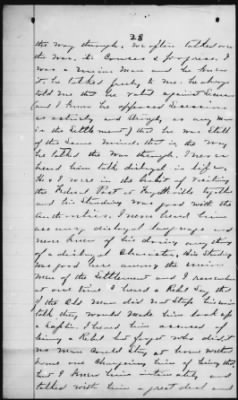 28
the way through. We often talked over
the War, its Causes & progress. I
was a Union Man and he knew
it, he talked freely to me. he always
told me that he voted against Secession
(and I know he opposed Secession
as actively and strongly as any man
in the Settlement) that he was still
of the Same mind. that is the way
he talked the War through. I never
heard him talk disloyal in his life.
He & I were in the habit of visiting
the Federal Post at Fayetteville together
and his Standing was good with the
Authorities. I never heard him
use any disloyal language and
never knew of his doing any thing
of a disloyal Character. His Standing
was good here among the Union
men of the Settlement and I remember
at one time I heard a Reb Say that
if the Old Man did not Stop his
talk they would make him look up
a Saplin. I heard him accused of
being a Rebel but forget who did it
no man could Stay at home without
some one Charging him of being that,
but I knew him intimately and
talked with him a great deal and